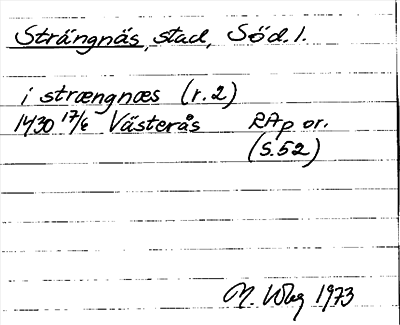 Strängnäs, stad, Söd. l.
i strængnæs (r. 2)
1430 17/6 Västerås RAp or.
(S. 52)
M. 1973